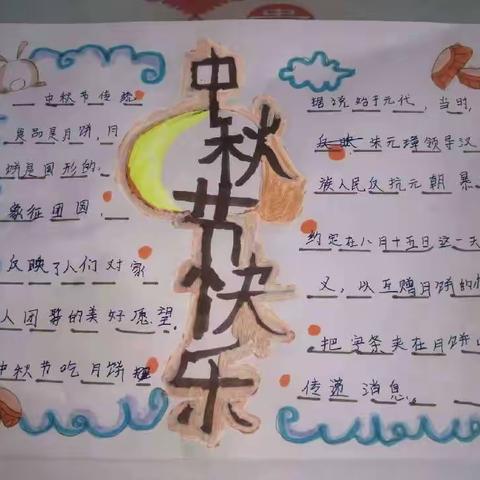 中秋节快乐
中秋节传统
食品是月饼，月
饼是圆形的，
象征团圆，
反映了人们对家
人团聚的美好愿望，
中秋节吃月饼
据说始于元代，当时，
朱元璋领导汉
族人民反抗元朝暴
约定在八月十五日这一天
义，以互赠月饼的
把字条夹在月饼
传递消息。